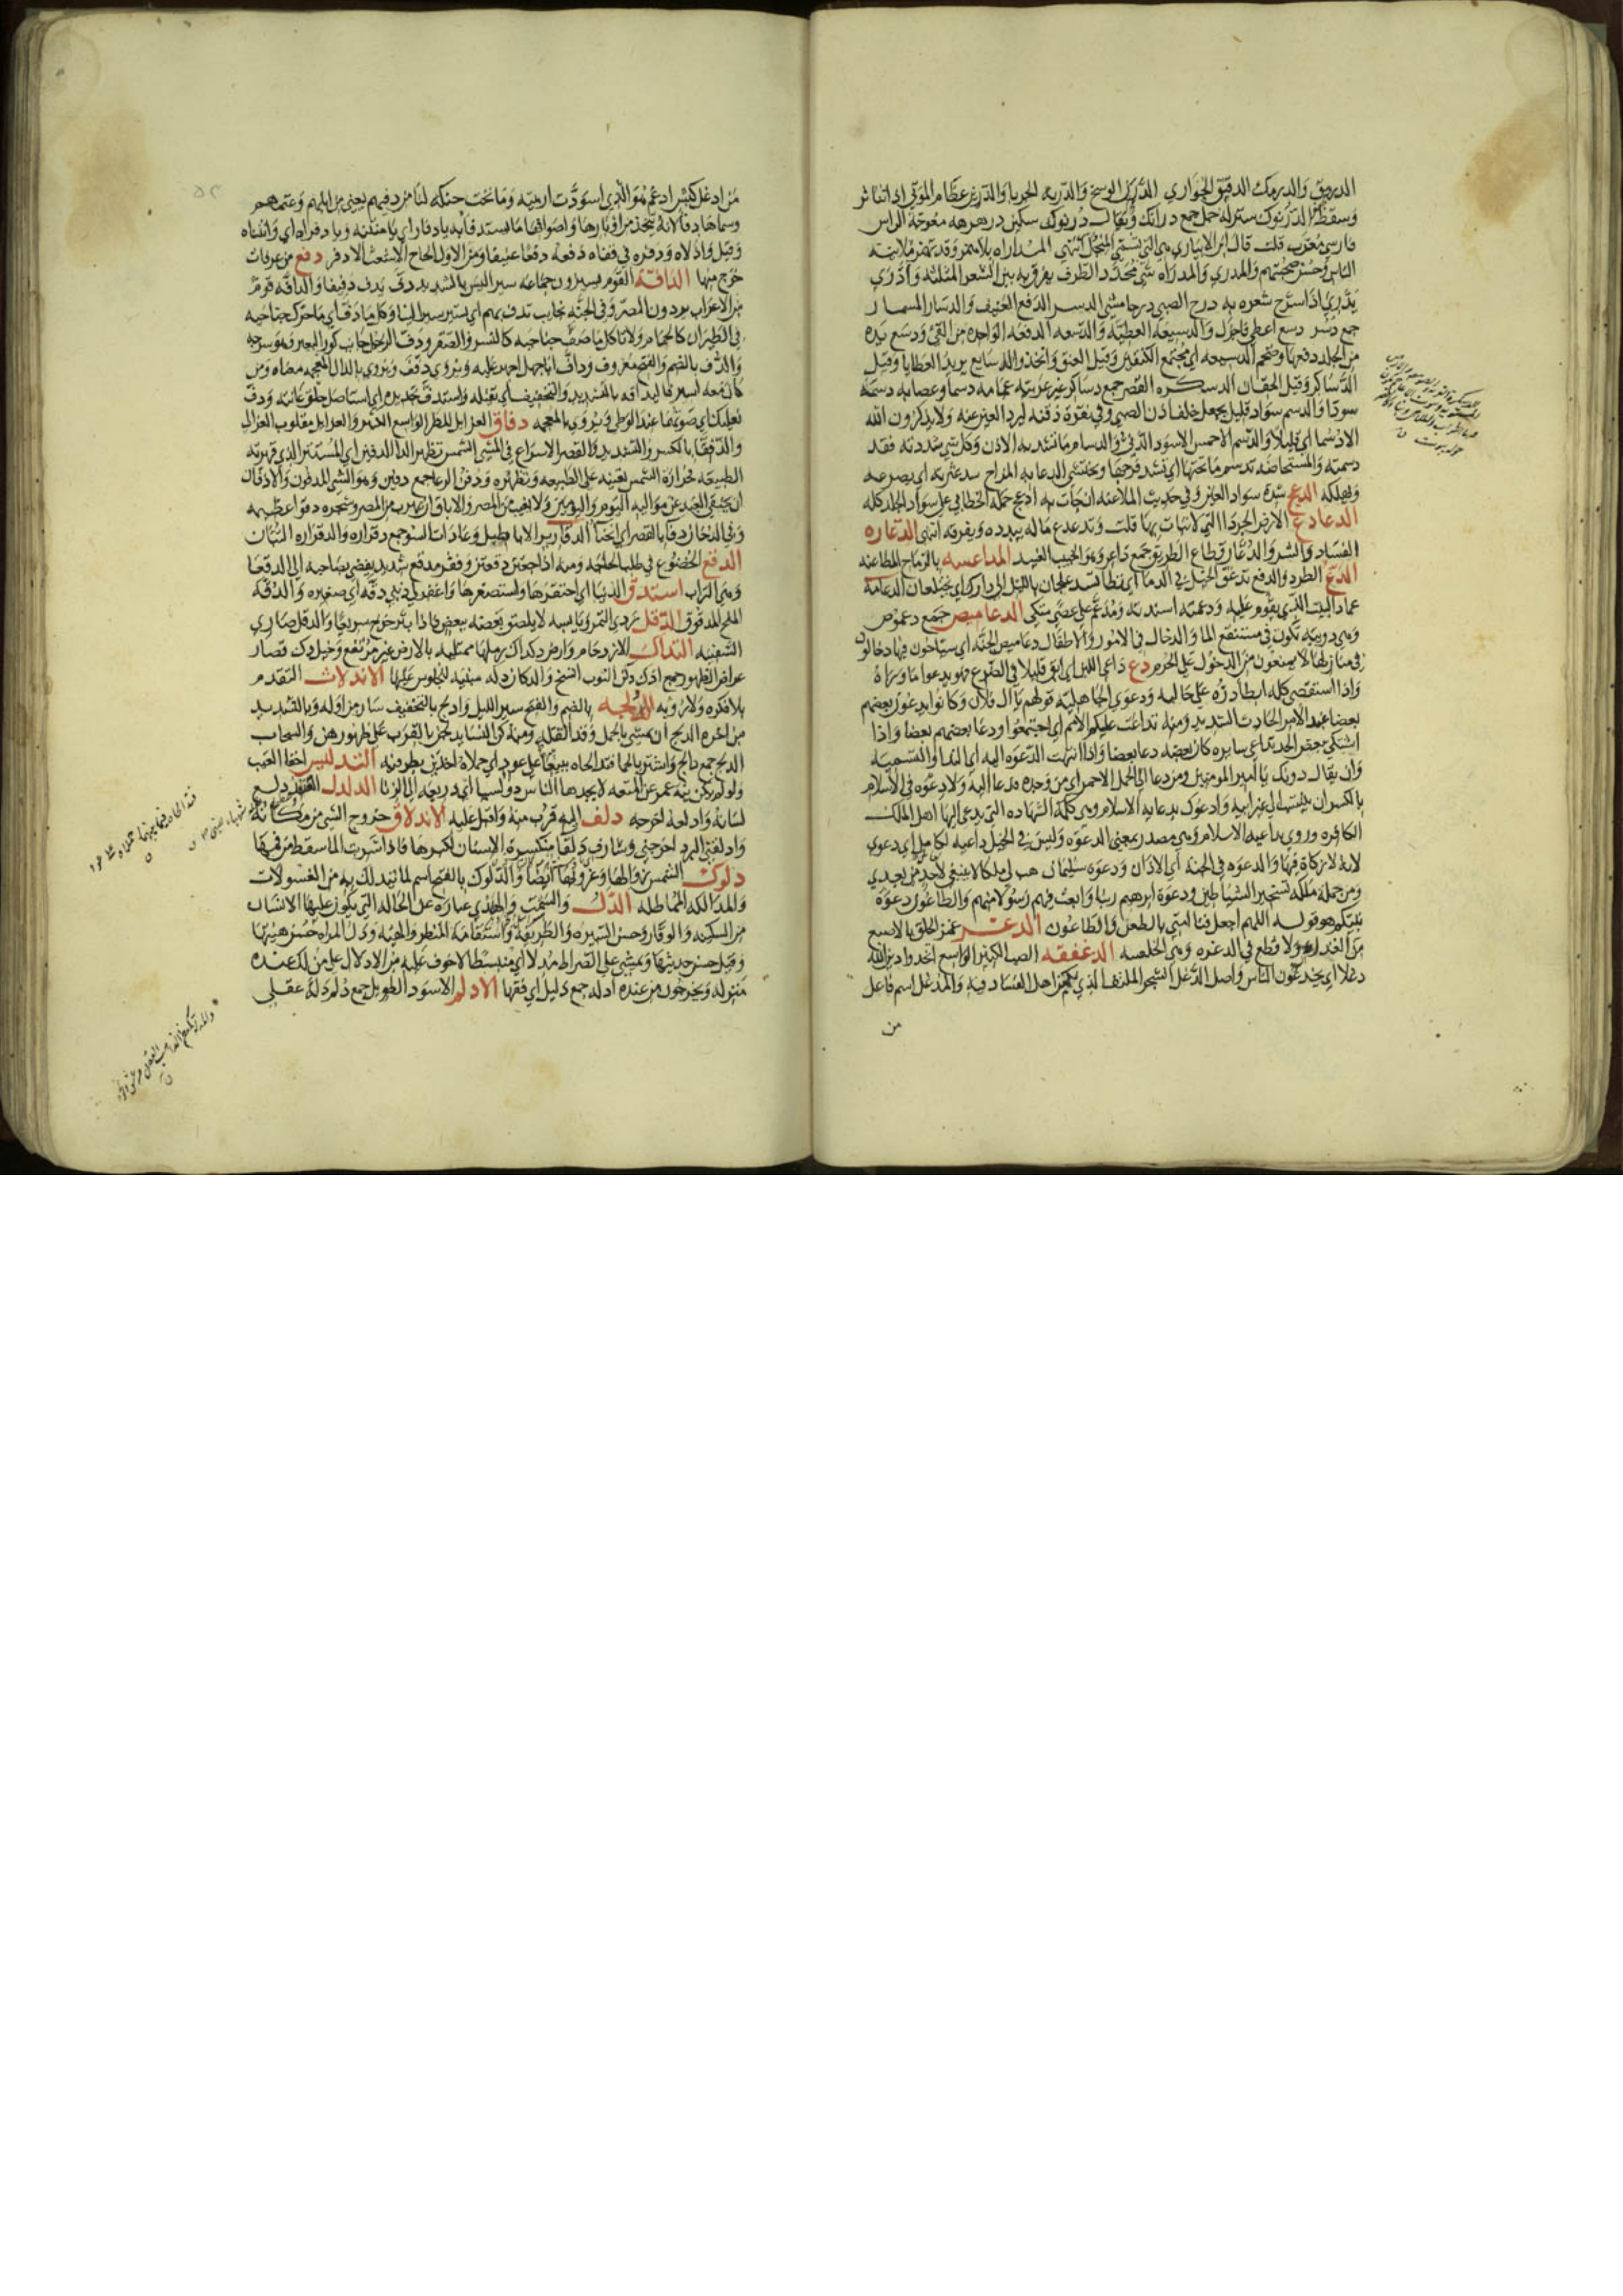 الدرمق والدرمك الدقيق الحواري الدرن الوسخ والدربه
وسقط الدرنوك ستر له خمل جمع درانك ويقال درنوك سكين درهرهه معوجة الراس
فارسي معرب قلت قال ابن الانباري هي التي تسميها المنجل انتهي المداراه بلا همز وقد تهمز ملاينة
الناس وحسن صحبتهم والمدري والمدراه شي محدد الطرف يفرق به بين الشعر الملبد وادري
يدري اذا سرح شعره به درج الصبي درجا مشي الدسر الدفع العنيف والدسار المسمار
جمع دسر دسع اعطي فاجزل والدسيعه العطيه والدسعه الدفعه الواحده من القي ودسع يده
من الجلد دفعها وضخم الدسيعه اي مجتمع الكتفين وقيل العنق واتخذوا الدسايع يريد العطايا وقيل
الدساكر وقيل الجفان الدسكره القصر جمع دساكر غير عربيه عمامه دسما وعصابه دسمه
سودا والدسم سواد قليل يجعل خلف اذن الصبي وفي نقرة ذقنه ليرد العين عنه ولا يذكرون الله
الا دسما اي قليلا والدسم الاحمس الاسود الدني والدسام ما تشد به الاذن وكل شي سددته فقد
دسمته والمستحاضه تدسم ما تحتها اي تسد فرجها وتحتشي الدعابه المزاح يدعثره اي يصرعه
ويهلكه الدعج شدة سواد العين وفي حديث الملاعنه ان جات به ادعج حمله الخطابي علي سواد الجلد كله
الدعادع الارض الجردا التي لا نبات بها قلت وتدعدع ماله يبدده ويفرقه انتهي الدعاره
الفساد والشر والدعار قطاع الطريق جمع داعر وهو الخبيث المداعسه بالرماح المطاعنه
الدع الطرد والدفع تدعق الخيل في الدما اي تطا الدعامه
عماد البيت الذي يقوم عليه ودعمته اسندته ومدعم علي عصي متكي الدعاميص جمع دعموص
وهي دويبه تكون في مستنقع الما والدخال في الامور والاطفال دعاميص الجنه اي سياحون فيها دخالون
في منازلها لا يمنعون من الدخول علي الحرم دع داعي اللبن اي ابق قليلا في الضرع فهو يدعوا ما وراه
واذا استقصي كله ابطا دره علي حالبه ودعوي الجاهليه قولهم يا ال فلان وكانوا يدعون بعضهم
بعضا عند الامر الحادث الشديد ومنه تداعت عليكم الامم اي اجتمعوا ودعا بعضهم بعضا واذا
اشتكي بعض الجسد تداعي سايره كان بعضه دعا بعضا واذا انتهت الدعوه اليه اي الندا والتسميه
وان يقال دونك يا امير المومنين ومن دعا الي الجمل الاحمر اي من وجده فدعا اليه ولا دعوه في الاسلام
بالكسر ان ينتسب الي غير ابيه وادعوك بدعاية الاسلام وهي كلمة الشهاده التي يدعي اليها اهل الملل
الكافره وروي بداعية الاسلام وهي مصدر بمعني الدعوه وليس في الخيل داعيه لعامل اي دعوي
لانه لا زكاة فيها والدعوه في الحبشه اي الاذان ودعوة سليمان هب لي ملكا لا ينبغي لاحد من بعدي
ومن جملة ملكه تسخير الشياطين ودعوة ابرهيم ربنا وابعث فيهم رسولا منهم والطاعون دعوة
نبيكم هو قوله اللهم اجعل فنا امتي بالطعن والطاعون الدغر غمز الحلق بالاصبع
من العذره ولا قطع في الدغره وهي الخلسه الدغفقه الصب الكثير الواسع اتخذوا دين الله
دغلا اي يخدعون الناس واصل الدغل الشجر الملتف الذي يكمن اهل الفساد فيه والمدغل اسم فاعل
من
من ادغل كبش ادغم هو الذي اسودت ارنبته وما تحت حنكه لنا من دفئهم يعني من ابلهم وغنمهم
وسماها دفا لانه يتخذ من اوبارها واصوافها ما يستدفا به يا دفار اي يا منتنه ويا دفراه اي وانتناه
وقيل واذلاه ودفره في قفاه دفعه دفعا عنيفا ومن الاول الحاج الاشعث الادفر دفع من عرفات
خرج منها الدافه القوم يسيرون جماعه سيرا ليس بالشديد دف يدف دفيفا والدافه قوم
من الاعراب يردون المصر وفي الجنه نجايب تدف بهم اي تسير سيرا لينا وكل ما دف اي ما حرك جناحيه
في الطيران كالحمام ولا تاكل ما صف جناحيه كالنسر والصقر ودف الرحل جانب كور البعير وهو سرجه
والدف بالضم والفتح معروف وداف ابا جهل اجهز عليه ويروي دفف ويروي بالذال المعجمه بمعناه ومن
كان معه اسير فليدافه بالتشديد والتخفيف اي يقتله واستدف بحديده اي استاصل حلق عانته ودف
نعليك اي صوتهما عند الوطي ويروي بالمعجمه دفاق العزايل المطر الواسع والعزايل مقلوب العزالي
والدفقا بالكسر والتشديد والقصر الاسراع في المشي الشمس تظهر الدا الدفين اي المستتر الذي قهرته
الطبيعه فحرارة الشمس تعينه علي الطبيعه وتظهره ودفن جمع دفين وهو الشي المدفون والادفان
ان يختفي العبد عن مواليه اليوم واليومين ولا يغيب عن المصر والاباق ان يهرب من المصر وشجره دفوا عظيمه
وفي الدجال دفا بالقصر اي انحنا الدقارير الاباطيل وعادات السو جمع دقراره والدقراره التبان
الدقع الخضوع في طلب الحاجه ومنه اذا جعتن دقعتن وفقر مدقع شديد يفضي بصاحبه الي الدقعا
وهي التراب استدق الدنيا اي احتقرها واستصغرها واغفر لي ذنبي دقه اي صغيره والدقه
الملح المدقوق الدقل ردي التمر ويابسه لا يلصق بعضه ببعض فاذا نثر خرج سريعا والدقل صاري
السفينه التداك الازدحام وارض دكداك رملها متلبد بالارض غير مرتفع وخيل دك قصار
عراض الظهور جمع ادك دكن الثوب اتسخ والدكان دكه مبنيه للجلوس عليها الاندلاث التقدم
بلا فكره ولا رويه الدلجه بالضم والفتح سير الليل وادلج بالتخفيف سار من اوله وبالتشديد
من اخره الدلج ان يمشي بالحمل وقد اثقله ومنه كن النسا يدلجن بالقرب علي ظهورهن والسحاب
الدلح جمع دالح واشتريا لحما فتدالحاه بينهما علي عود اي حملاه اخذين بطرفيه التدليس اخفا العيب
ولو لم ينه عمر عن المتعه لاتخذها الناس دولسيا اي ذريعه الي الزنا الدلدل القنفذ دلع
لسانه وادلعه اخرجه دلف اليه قرب منه واقبل عليه الاندلاق خروج الشي من مكانه
وادلقني البرد اخرجني وشارف دلقا متكسرة الاسنان لكبرها فاذا شربت الما سقط من فيها
دلوك الشمس زوالها وغروبها ايضا والدلوك بالفتح اسم لما يتدلك به من الغسولات
والمدالكه المماطله الدل والسمت والهدي عباره عن الحاله التي يكون عليها الانسان
من السكينه والوقار وحسن السيره والطريقه واستقامة المنظر والهيئه ودل المراه حسن هيئتها
وقيل حسن حديثها ويمشي علي الصراط مدلا اي منبسطا لا خوف عليه من الادلال علي من لك عنده
منزله ويخرجون من عنده ادله جمع دليل اي فقها الادلم الاسود الطويل جمع دلم دله عقلي